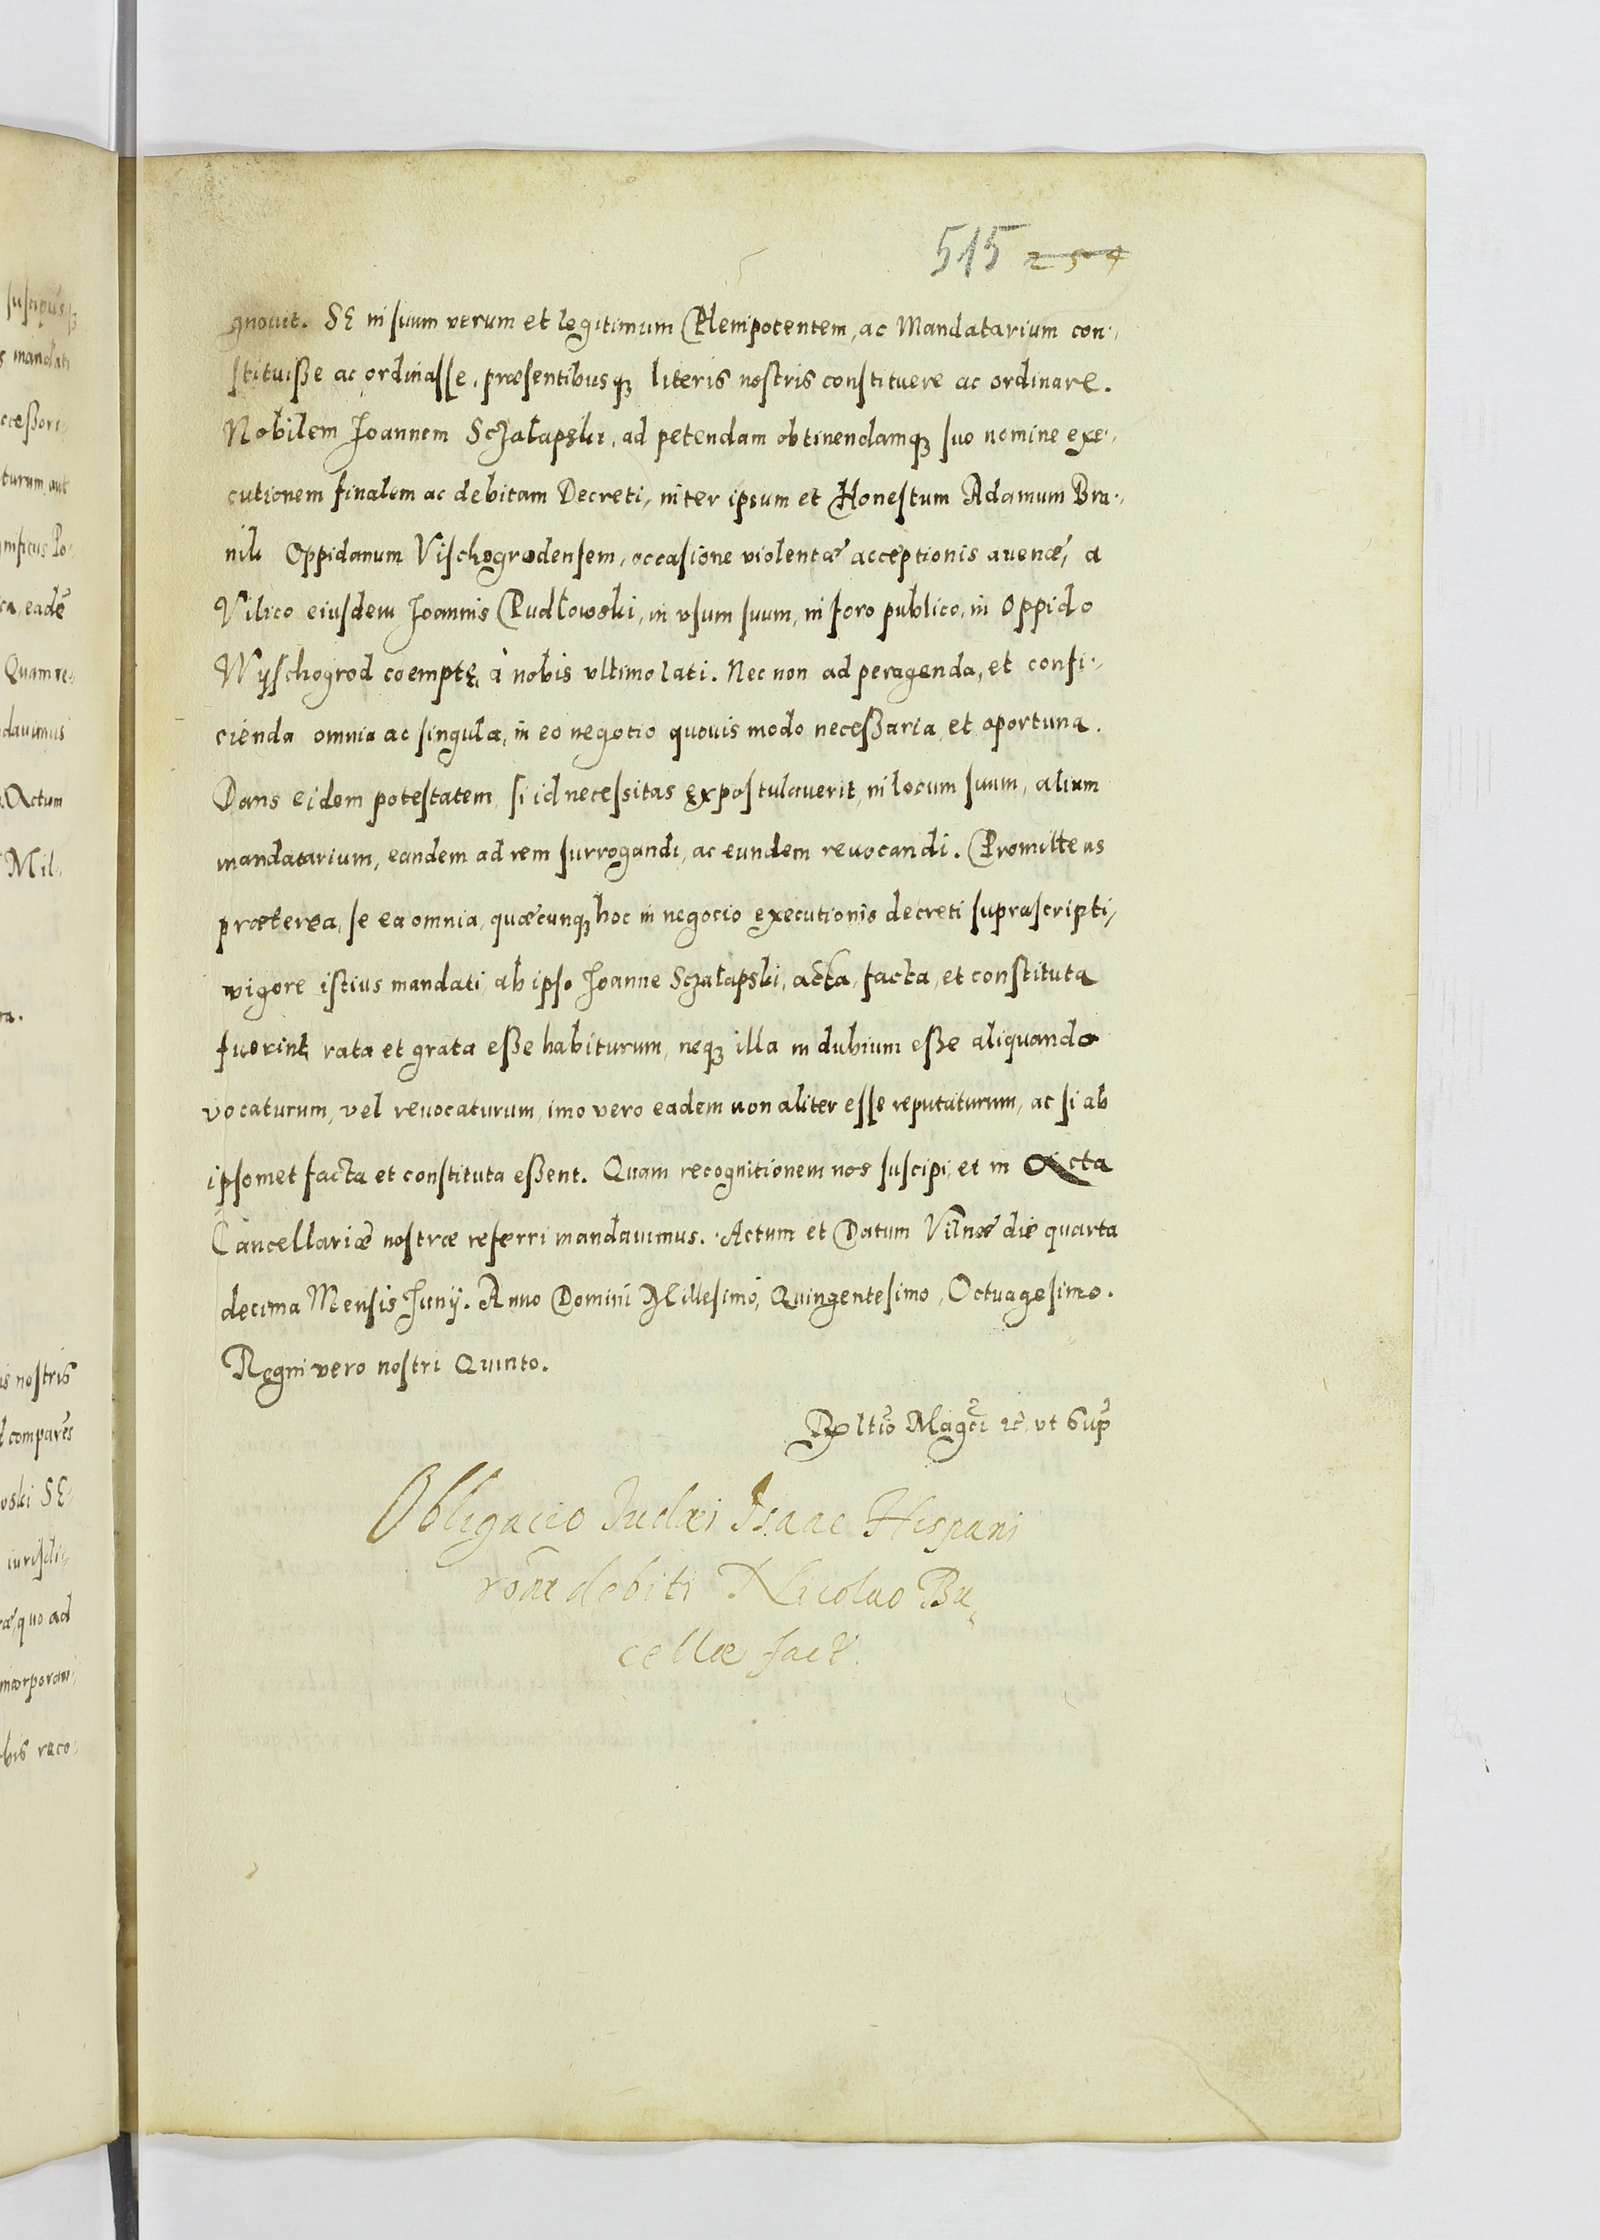 515 254
gnouit. SE in suum verum et legitimum Plenipotentem, ac Mandatarium con:
stituisse ac ordinasse, præsentibusq₃ literis nostris constituere ac ordinare.
Nobilem Joannem Sczałapski, ad petendam obtinendamq₃ suo nomine exe:
cutionem finalem ac debitam Decreti, inter ipsum et Honestum Adamum Bra:
nik Oppidanum Vischogrodensem, occasione violentæ acceptionis auenæ, a
Vilico eiusdem Joannis Rudłowski, in vsum suum, in foro publico, in Oppido
Wyschogrod coemptę, à nobis vltimo lati. Nec non ad peragenda, et confi:
cienda omnia ac singula, in eo negotio quouis modo necessaria et oportuna.
Dans eidem potestatem, si id necessitas expostulauerit, in locum suum, alium
mandatarium, eandem ad rem surrogandi, ac eundem reuocandi. Promittens
præterea, se ea omnia, quæcunq₃ hoc in negocio executionis decreti suprascripti,
vigore istius mandati, ab ipso Joanne Sczałapski, acta, facta, et constituta
fuerint, rata et grata esse habiturum, neq₃ illa in dubium esse aliquando
vocaturum, vel reuocaturum, imo vero eadem non aliter esse reputaturum, ac si ab
ipsomet facta et constituta essent. Quam recognitionem nos suscipi, et in Acta
Cancellariæ nostræ referri mandauimus. Actum et Datum Vilnæ die quarta
decima Mensis Junij. Anno Domini Millesimo, Quingentesimo, Octuagesimo.
Regni vero nostri Quinto.
Rltio Magci etc vt Sup
Obligacio Judæi Isaac Hispani
rone debiti Nicolao Bu
cellæ fact.